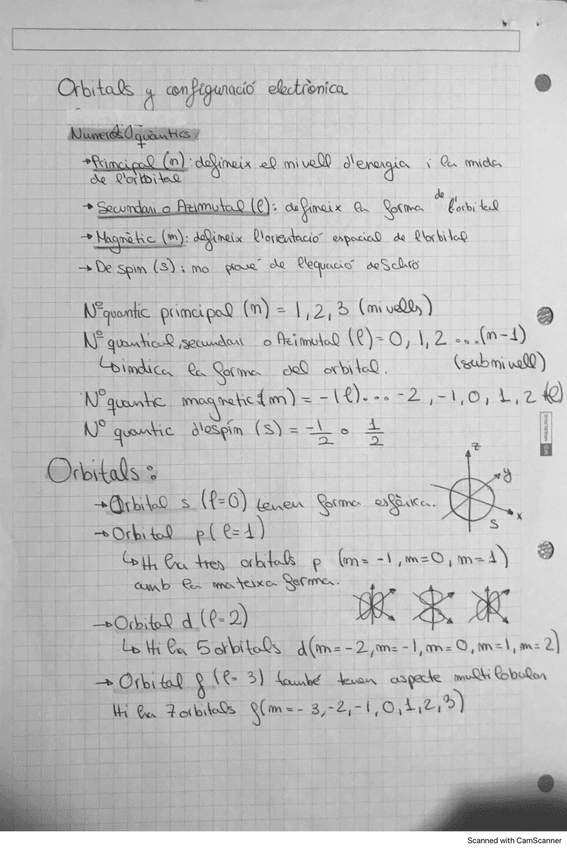 Orbitals y configuració electrònica
Numeros quàntics
→Principal (n): defineix el nivell d'energia i la mida
de l'orbital
→ Secundari o Azimutal (l): defineix la forma de l'orbital
→ Magnètic (m): defineix l'orientació espacial de l'orbital
→ De spim (s): no prové de l'equació de Schrö
Nº quantic principal (n) = 1, 2, 3 (nivells)
Nº quantic l, secundari o Azimutal (l) = 0, 1, 2 ... (n-1)
↳ indica la forma del orbital. (subnivell)
Nº quantic magnetic (m) = -(l)... -2, -1, 0, 1, 2 (l)
Nº quantic d'espín (s) = -1/2 o 1/2
Orbitals:
→ Orbital s (l=0) tenen forma esfèrica.
z
y
x
s
→ Orbital p (l=1)
↳ Hi ha tres orbitals p (m= -1, m=0, m=1)
amb la mateixa forma.
→ Orbital d (l=2)
↳ Hi ha 5 orbitals d (m=-2, m=-1, m=0, m=1, m=2)
→ Orbital f (l=3) també tenen aspecte multilobular
Hi ha 7 orbitals f (m=-3, -2, -1, 0, 1, 2, 3)
Scanned with CamScanner